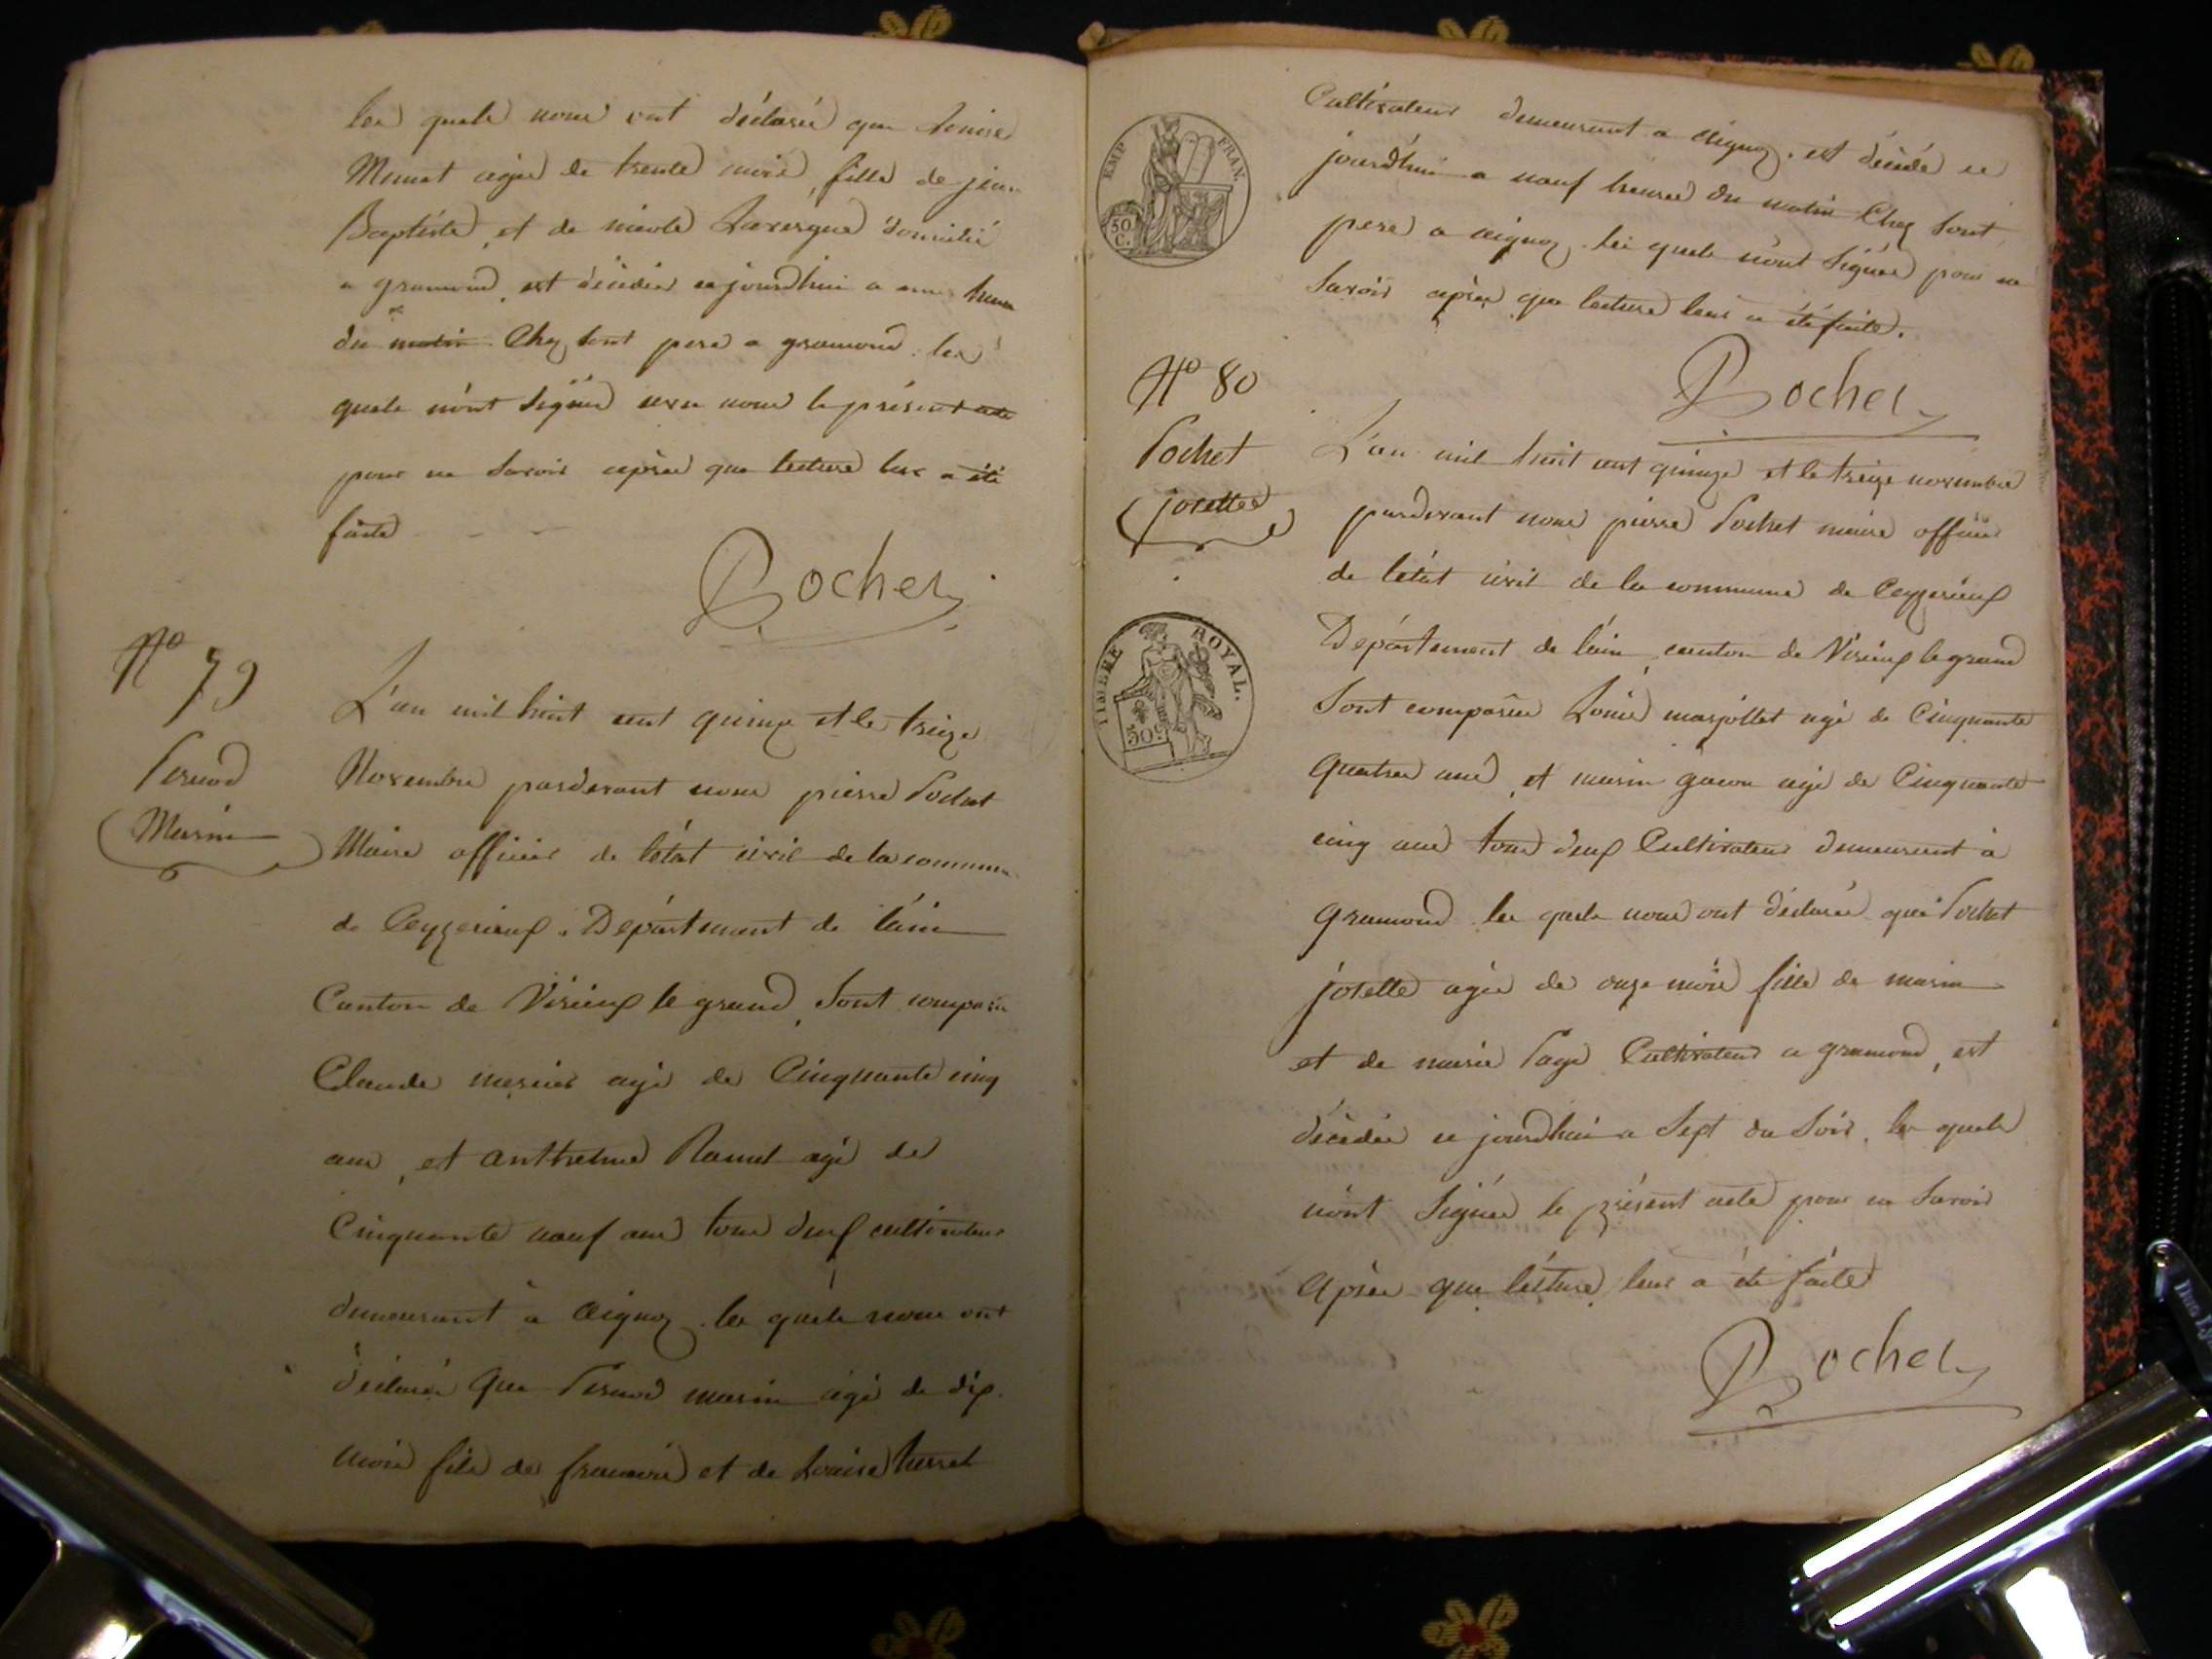 les quels nous ont déclaré que Louise
Munet agée de trente mois, fille de jean
Baptiste, et de nicole Lavergne domicilié
a gramond, est décédée ce jourdhui a une heure
du matin Chez sont pere a gramond. les
quels n'ont signé avec nous le présent acte
pour ne savoir après que lecture leur a été
faite
Pochet
N° 79
Pernod
Marin
L'an mil huit cent quinze et le treize
Novembre pardevant nous pierre Pochet
Maire officier de l'état civil de la commune
de Ceyzerieux. Département de l'ain
Canton de Virieux le grand, Sont comparu
Claude mernier agé de Cinquante cinq
ans, et Antthelme Ramel agé de
Cinquante neuf ans tous deux cultivateurs
demeurant à aignoz. les quels nous ont
déclaré que Pernod marin agé de dix
mois fils de francois et de Louise
EMP. FRAN.
50 C.
Cultivateur demeurant a aignoz. est décédé ce
jourd'hui a neuf heures du matin Chez sont
pere a aignoz. les quels n'ont signés pour ne
Savoir après que lecture leur a été faite.
Pochet
N° 80
Pochet
josette
TIMBRE ROYAL.
50 C
L'an mil huit cent quinze et le treize novembre
pardevant nous pierre Pochet maire officier
de l'état civil de la commune de Ceyzerieux
Département de l'ain, canton de Virieux le grand
Sont comparus Louis marjollet agé de Cinquante
quatres ans, et marin gacon agé de Cinquante
cinq ans tous deux Cultivateur demeurent à
gramond les quels nous ont déclarés que Pochet
josette agée de onze mois fille de marin
et de marie Page Cultivateur a gramond, est
décédée ce jourdhui a Sept du Soir, les quels
n'ont Signés le présent acte pour ne Savoir
après que lecture leur a été faite
Pochet